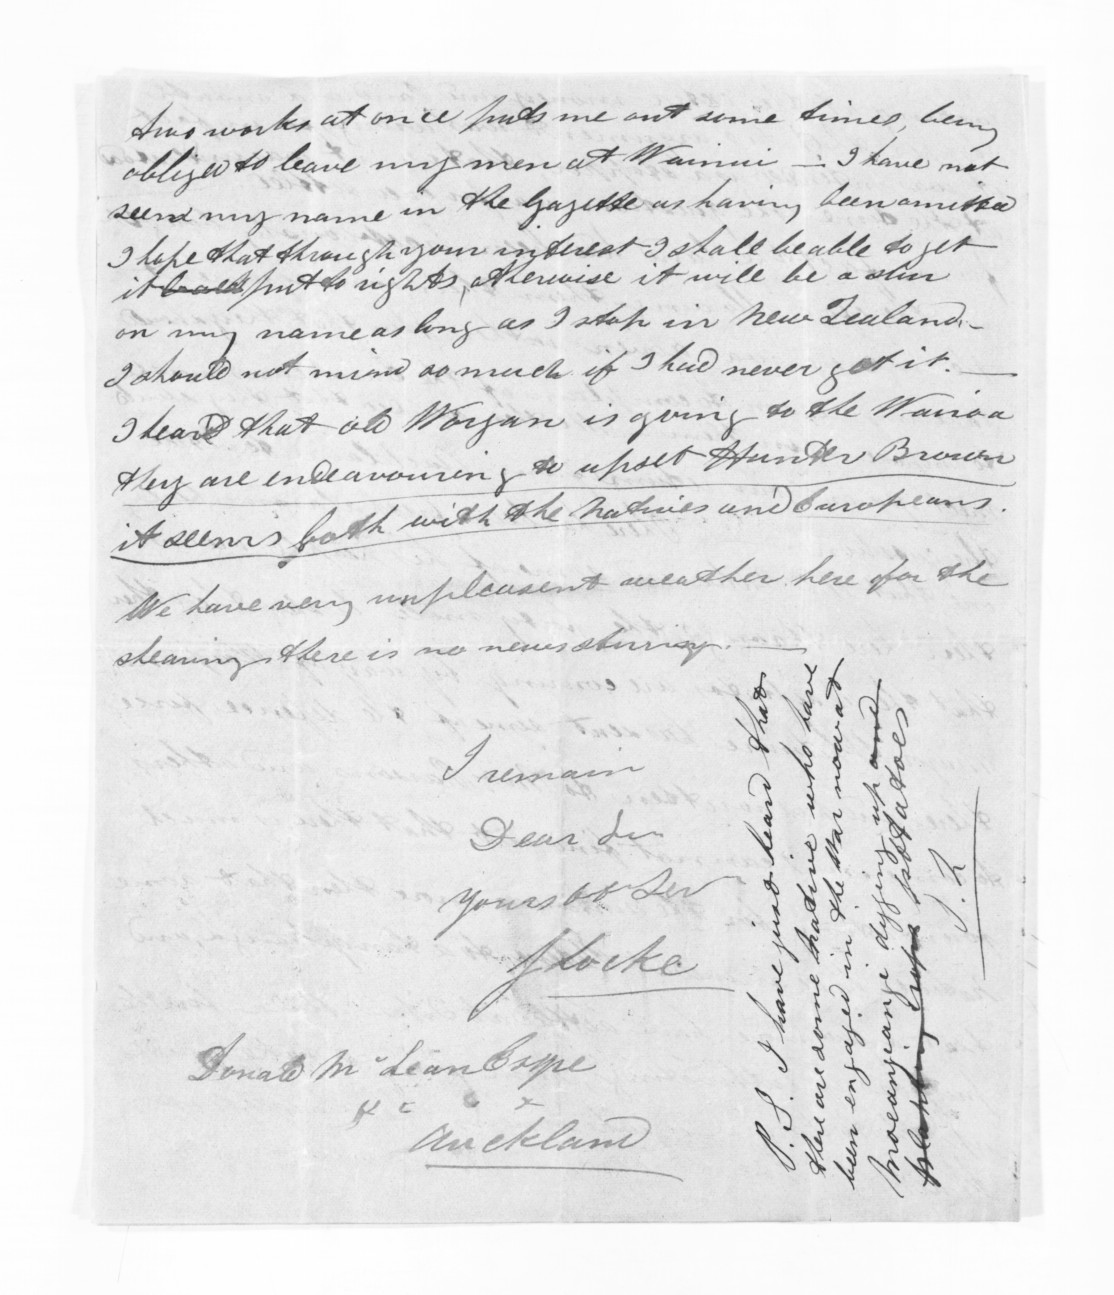 two works at once puts me out some times, being
obliged to leave my men at Wainui — I have not
seen my name in the Gazette as having been omitted
I hope that through your interest I shall be able to get
it put to rights, otherwise it will be a slur
on my name as long as I stop in New Zealand. —
I should not mind so much if I had never got it. —
I heard that old Worgan is going to the Wairoa
they are endeavouring to upset Hunter Brown
it seems both with the Natives and Europeans.
We have very unpleasent weather here for the
shearing there is no news stirring. —
I remain
Dear Sir
Yours ob Ser
S Locke
Donald McLean Esqre
&c
Auckland
P. S. I have just heard that
there are some natives who have
been engaged in the war now at
Moeangiangi digging up and
planting crops potatoes
S. L